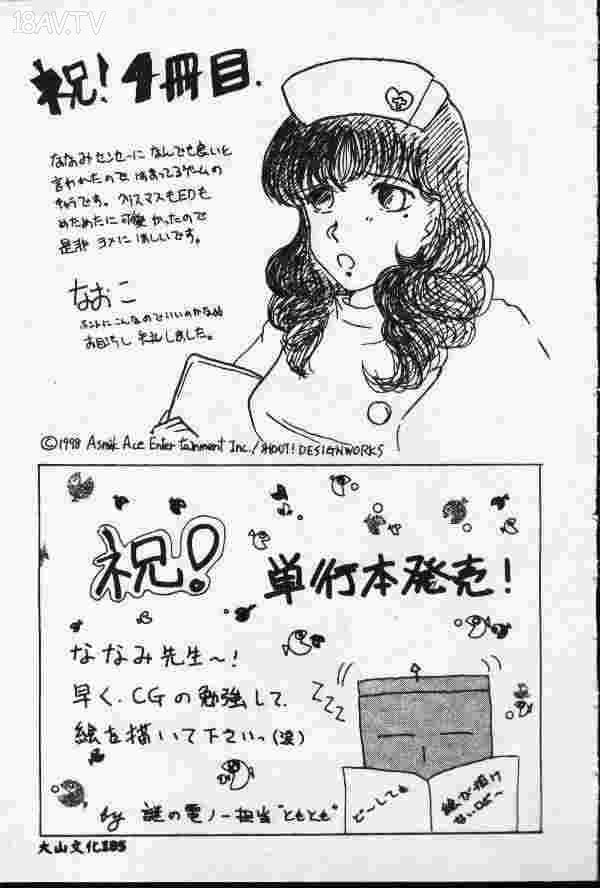 18AV.TV
祝! 4冊目.
ななみセンセーに なんでも良いと
言われたので はまってるゲームの
きゃらです。クリスマスもEDも
めためたに可愛かったので
是非 ヨメに ほしいです。
なおこ
ホントにこんなのでいいのかなぁ
お目汚し 失礼しました。
©1998 Asmik Ace Entertainment Inc./SHOUT! DESIGNWORKS
祝!
単行本発売!
ななみ先生〜!
早く、CGの勉強して、
絵を描いて下さいっ(涙)
ZZZ
by 謎の電ノー担当"ともとも"
どーしても
絵が描け
ないロビ〜
大山文化